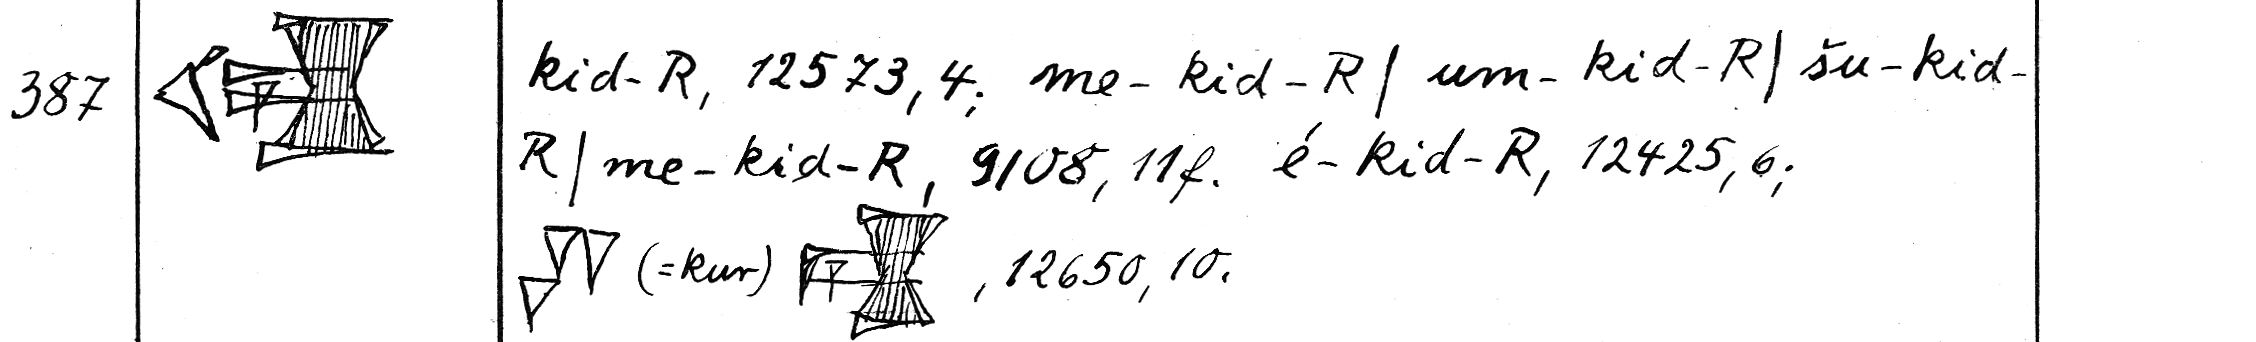 387 kid-R, 12573,4; me-kid-R/ um-kid-R/ šu-kid-
R/ me-kid-R, 9108,11f. é-kid-R, 12425,6;
(=kur) , 12650,10.